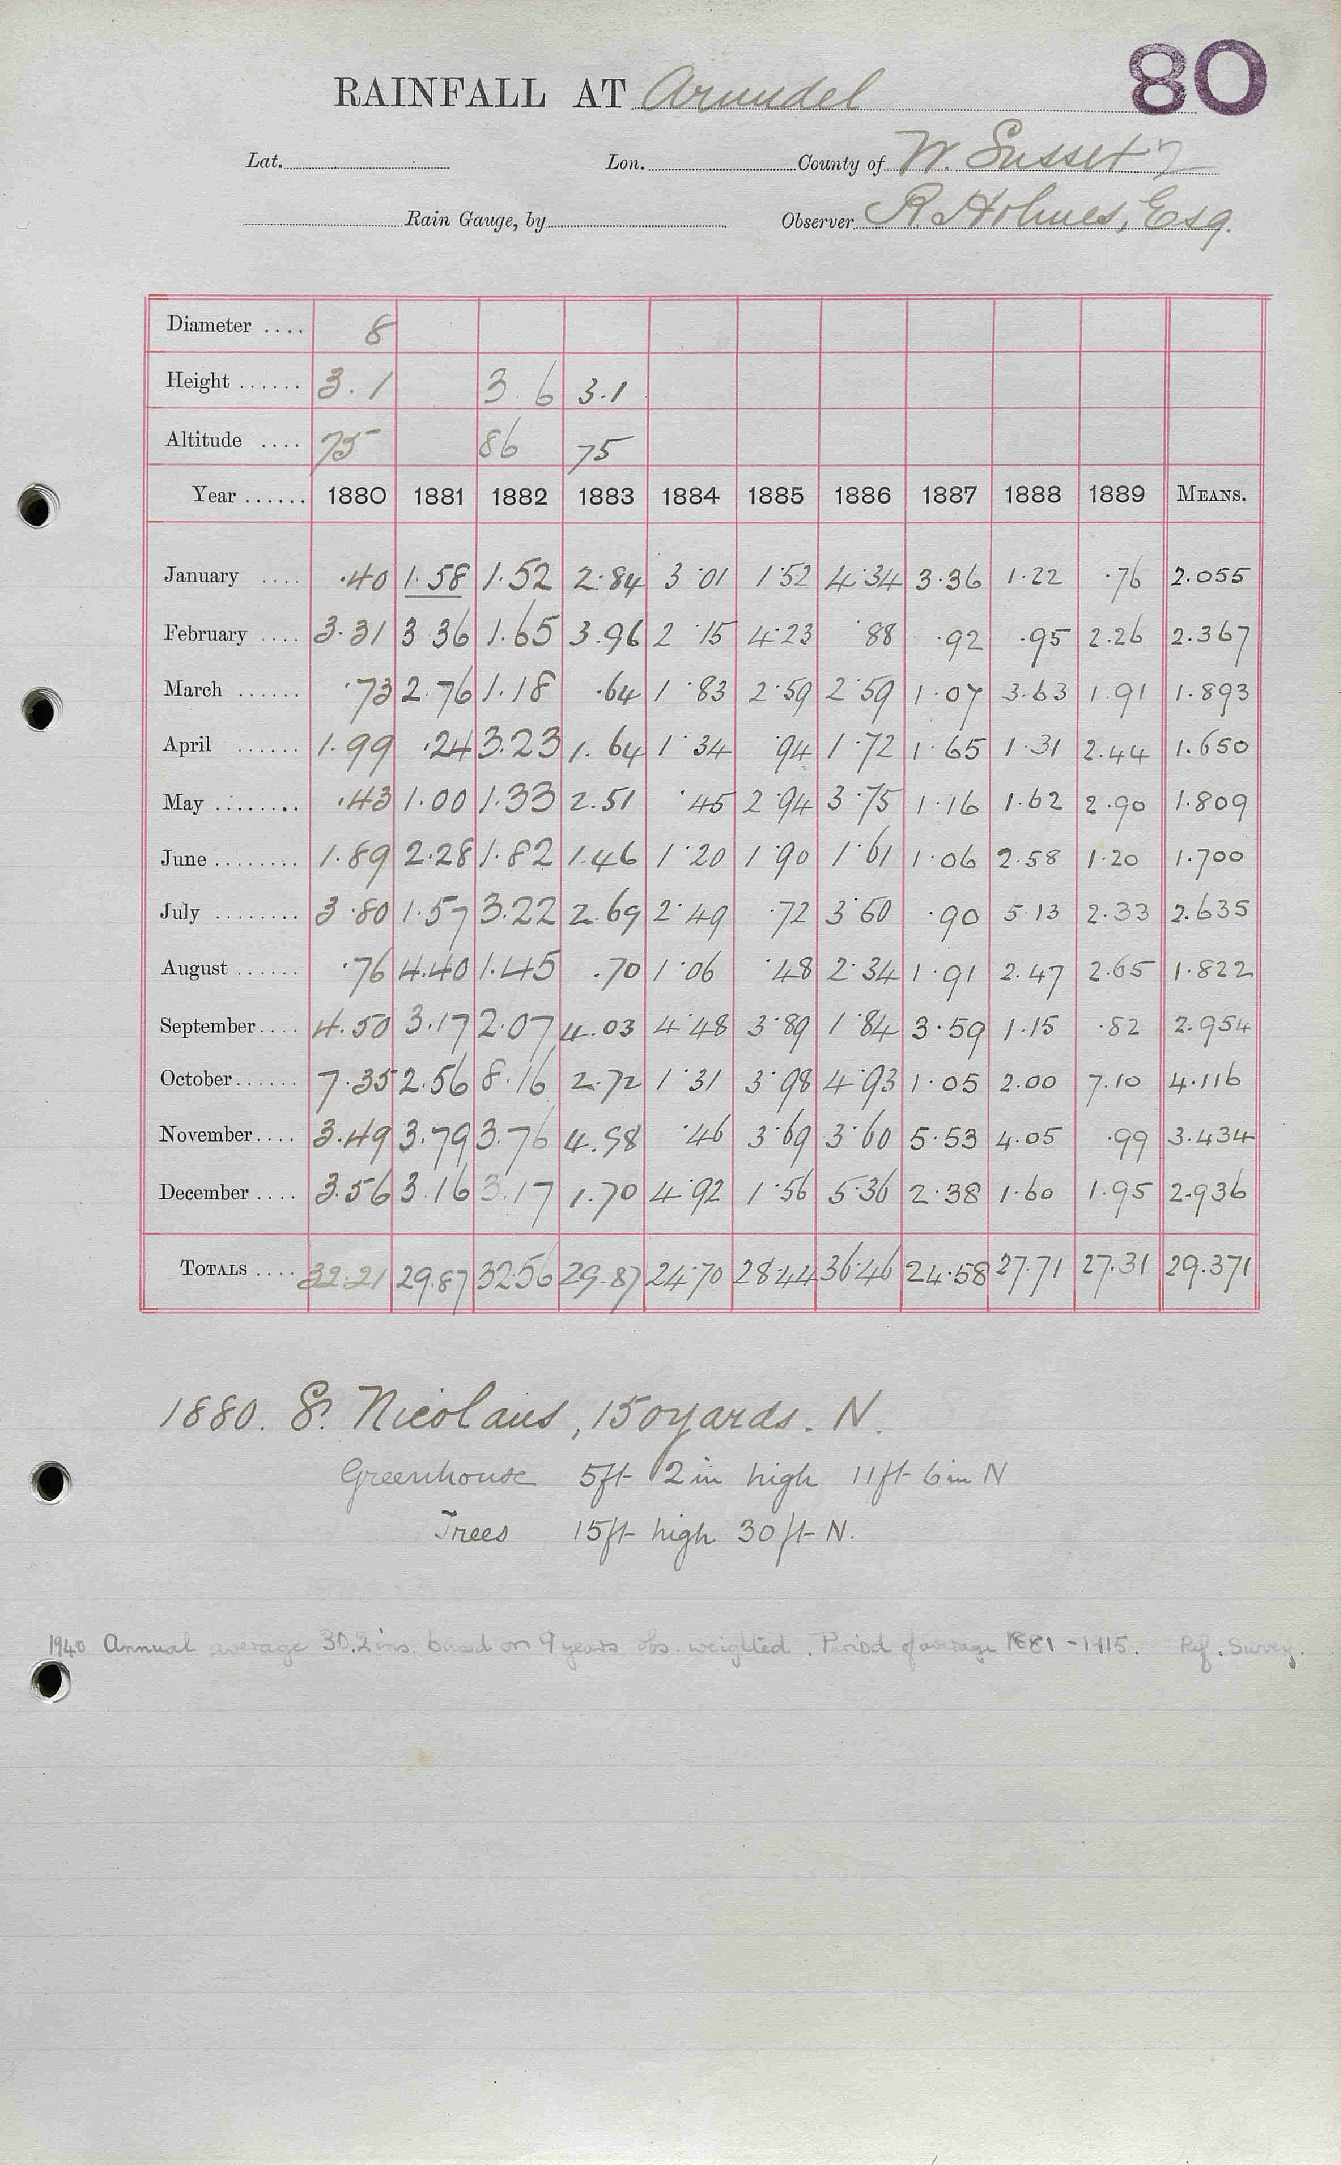 80
RAINFALL AT Arundel
Lat. Lon. County of W. Sussex
Rain Gauge, by Observer R. Holmes, Esq.
Diameter .... 8
Height ...... 3.1 3.6 3.1
Altitude .... 75 86 75
Year ...... 1880 1881 1882 1883 1884 1885 1886 1887 1888 1889 MEANS.
January .... .40 1.58 1.52 2.84 3.01 1.52 4.34 3.36 1.22 .76 2.055
February .... 3.31 3.36 1.65 3.96 2.15 4.23 .88 .92 .95 2.26 2.367
March ...... .73 2.76 1.18 .64 1.83 2.59 2.59 1.07 3.63 1.91 1.893
April ...... 1.99 .24 3.23 1.64 1.34 .94 1.72 1.65 1.31 2.44 1.650
May ........ .43 1.00 1.33 2.51 .45 2.94 3.75 1.16 1.62 2.90 1.809
June ........ 1.89 2.28 1.82 1.46 1.20 1.90 1.61 1.06 2.58 1.20 1.700
July ........ 3.80 1.57 3.22 2.69 2.49 .72 3.60 .90 5.13 2.33 2.635
August ...... .76 4.40 1.45 .70 1.06 .48 2.34 1.91 2.47 2.65 1.822
September .... 4.50 3.17 2.07 4.03 4.48 3.89 1.84 3.59 1.15 .82 2.954
October ...... 7.35 2.56 8.16 2.72 1.31 3.98 4.93 1.05 2.00 7.10 4.116
November .... 3.49 3.79 3.76 4.98 .46 3.69 3.60 5.53 4.05 .99 3.434
December .... 3.56 3.16 3.17 1.70 4.92 1.56 5.36 2.38 1.60 1.95 2.936
TOTALS .... 32.21 29.87 32.56 29.87 24.70 28.44 36.46 24.58 27.71 27.31 29.371
1880. S. Nicolaus, 150 yards. N.
Greenhouse 5ft 2in high 11ft 6in N
Trees 15ft high 30ft N.
1940 Annual average 30.2 ins. based on 9 years obs. weighted. Period of average 1881-1915. Ref. Survey.